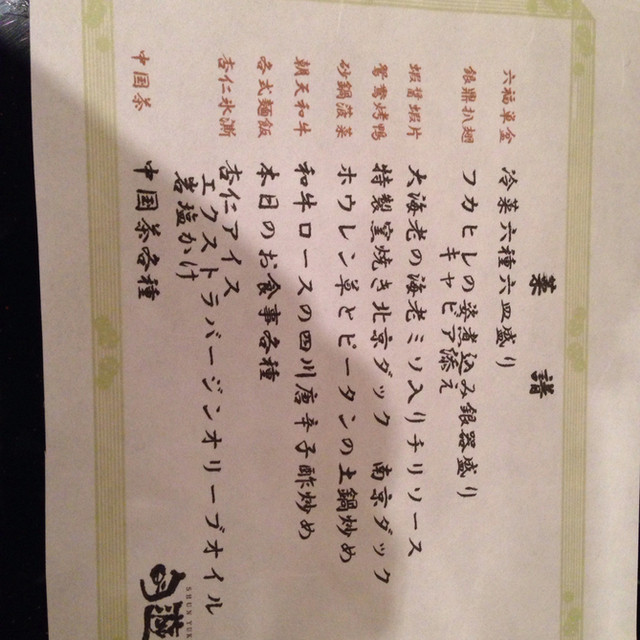 菜譜
六福単盆 冷菜六種六皿盛り
銀鼎扒翅 フカヒレの姿煮込み銀器盛り
キャビア添え
蝦醤蝦片 大海老の海老ミソ入りチリソース
鴛鴦烤鴨 特製窯焼き北京ダック 南京ダック
砂鍋菠菜 ホウレン草とピータンの土鍋炒め
朝天和牛 和牛ロースの四川唐辛子酢炒め
各式麺飯 本日のお食事各種
杏仁氷淅 杏仁アイス
エクストラバージンオリーブオイル
岩塩かけ
中国茶 中国茶各種
SHUN YUK